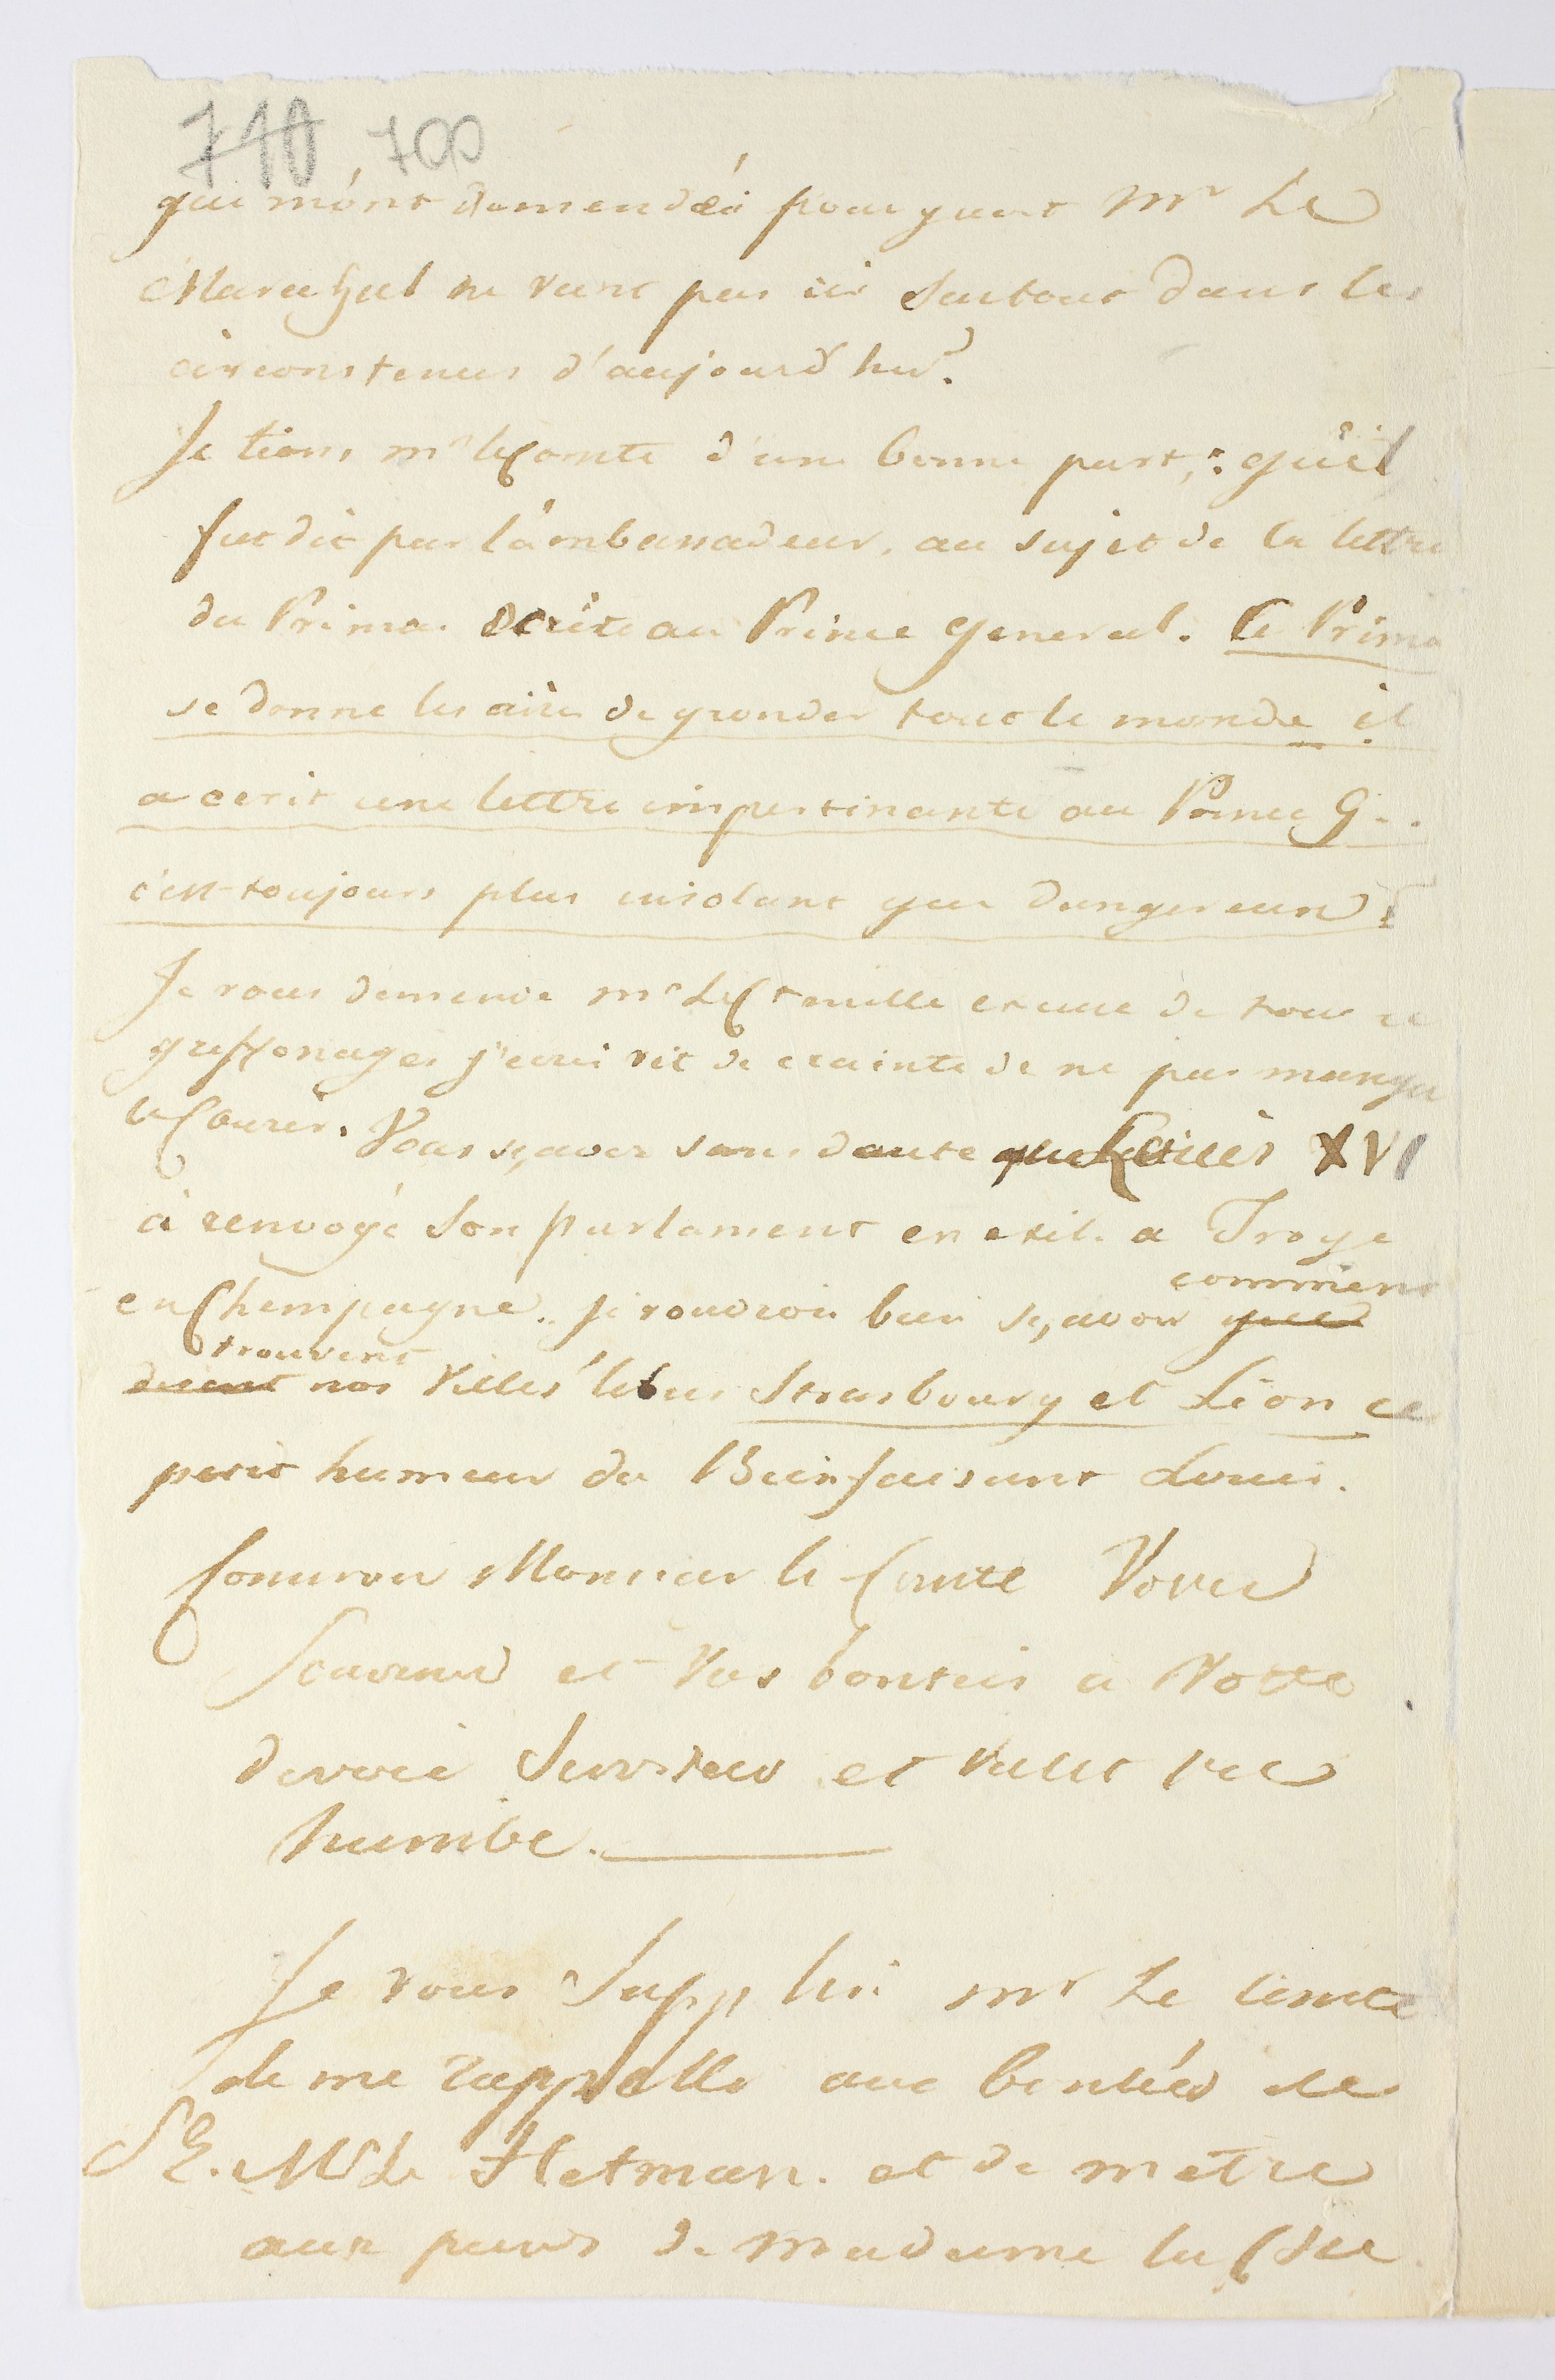 710 700
qui m'ónt demendéé pour quoi Mr Le
Marechal ne vient pas ici surtout dans les
circonstences d'aujourd'hui?
Je tiens mr le Comte d'une bonne part, : qu'il
fut dit par l'ambassadeur, au sujet de la lettre
du Prima. écrite au Prince General. Ce Prima
se donne les airs de gronder tout le monde il
a ecrit une lettre impertinante au Prince G..
c'est toujours plus insolant que dangereux!
Je vous demende mr Le C mille excuse de tous ce
greffonages j'ecri vit de crainte de ne pas manquer
le Courier. Vous sçavez sans doute que Louis XVI
à renvoyé son parlament en exile a Troye
en Chempagne. je voudrois bien sçavoir comment
trouvent nos Villes Strasbourg et Léon ce
petit humeur du Bienfaisant Louis.
Conservez Monsieur le Comte Votre
Souvenir et Vos bontées a Votre
devoué Serviteur et valet tres
humble.
Je vous Supplie mr Le Comte
de me rappelle aux bontées de
S E. Mr Le Hetman. et de metre
aux pieds de madame la Ctsse